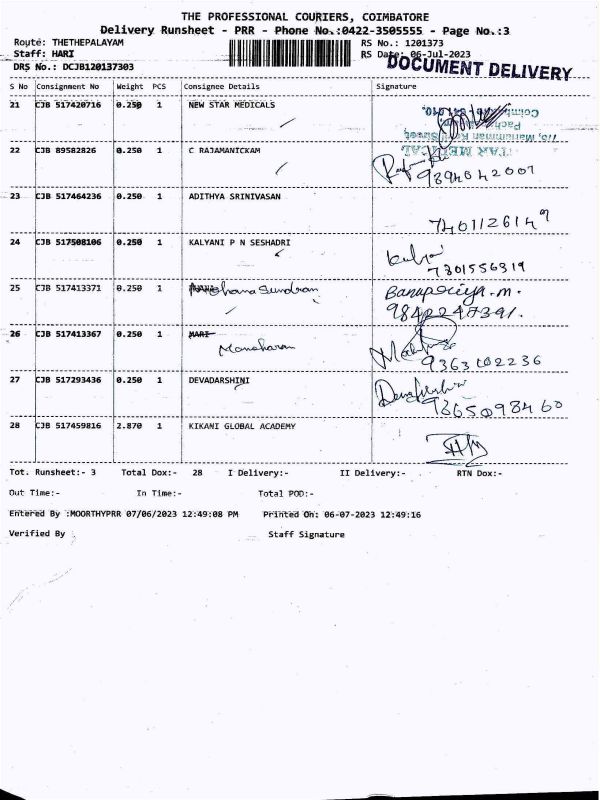 THE PROFESSIONAL COURIERS, COIMBATORE
Delivery Runsheet - PRR - Phone No.:0422-3505555 - Page No.:3
Route: THETHEPALAYAM RS No.: 1201373
Staff: HARI RS Date: 06-Jul-2023
DOCUMENT DELIVERY
DRS No.: DCJB120137303
S No Consignment No Weight PCS Consignee Details Signature
21 CJB 517420716 0.250 1 NEW STAR MEDICALS
22 CJB 89582826 0.250 1 C RAJAMANICKAM
9894042007
23 CJB 517464236 0.250 1 ADITHYA SRINIVASAN
7401126149
24 CJB 517508106 0.250 1 KALYANI P N SESHADRI
7301556319
25 CJB 517413371 0.250 1 Mohana Sundram Banupriya.m.
9842247391.
26 CJB 517413367 0.250 1 HARI
Manoharan
9363102236
27 CJB 517293436 0.250 1 DEVADARSHINI
9365098460
28 CJB 517459816 2.870 1 KIKANI GLOBAL ACADEMY
Tot. Runsheet:- 3 Total Dox:- 28 I Delivery:- II Delivery:- RTN Dox:-
Out Time:- In Time:- Total POD:-
Entered By :MOORTHYPRR 07/06/2023 12:49:08 PM Printed On: 06-07-2023 12:49:16
Verified By Staff Signature